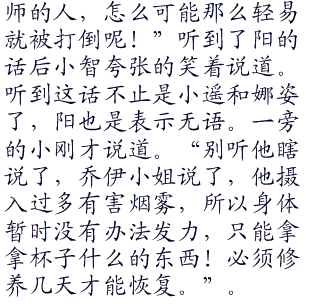 师的人，怎么可能那么轻易
就被打倒呢！”听到了阳的
话后小智夸张的笑着说道。
听到这话不止是小遥和娜姿
了，阳也是表示无语。一旁
的小刚才说道。“别听他瞎
说了，乔伊小姐说了，他摄
入过多有害烟雾，所以身体
暂时没有办法发力，只能拿
拿杯子什么的东西！必须修
养几天才能恢复。”。